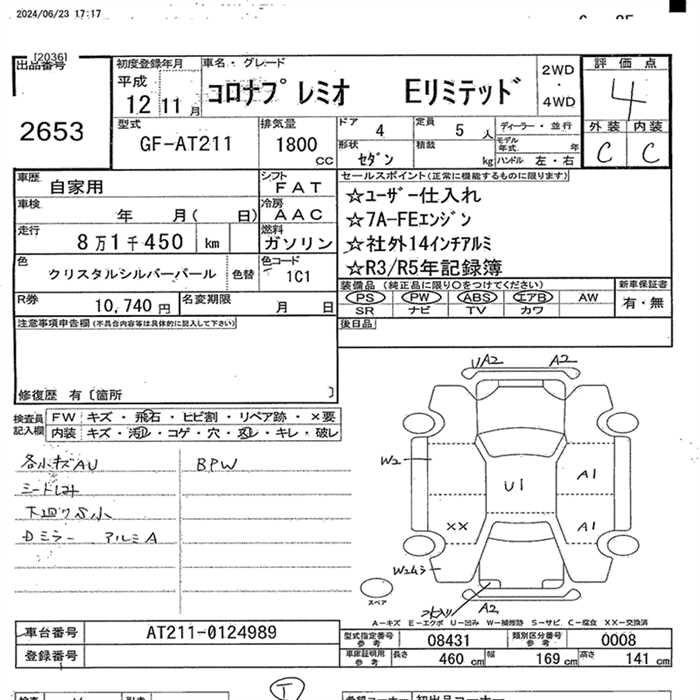 2024/06/23 17:17
[2036]
出品番号
2653
初度登録年月
平成
12 11月
車名・グレード
コロナプレミオ Eリミテッド
2WD
・
4WD
評価点
4
外装 内装
C C
型式
GF-AT211
排気量
1800
cc
ドア 4
定員 5 人
形状 セダン
積載 kg
ディーラー・並行
モデル年式 年
ハンドル 左・右
車歴 自家用
シフト FAT
車検 年 月( 日)
冷房 AAC
走行 8万1千450 km
燃料 ガソリン
色 クリスタルシルバーパール 色替
色コード 1C1
R券 10,740円
名変期限 月 日
セールスポイント(正常に機能するものに限ります)
☆ユーザー仕入れ
☆7A-FEエンジン
☆社外14インチアルミ
☆R3/R5年記録簿
装備品(純正品に限り○をつけてください)
PS PW ABS エアB AW
SR ナビ TV カワ
新車保証書
有・無
後日品
注意事項申告欄(不具合内容等は具体的に記入して下さい)
修復歴 有〔箇所 〕
検査員
記入欄
FW キズ・飛石・ヒビ割・リペア跡・×要
内装 キズ・汚レ・コゲ・穴・恋レ・キレ・破レ
各小キズAU
BPW
下廻りS小
Dミラー アルミA
UA2
A2
W2
A1
U1
XX
A1
W2ムラ
A2
スペア
A-キズ E-エクボ U-凹み W-補修跡 S-サビ C-腐食 XX-交換済
車台番号 AT211-0124989
登録番号
型式指定番号
参考
08431
類別区分番号
参考
0008
車庫証明用
参考
長さ 460 cm
幅 169 cm
高さ 141 cm